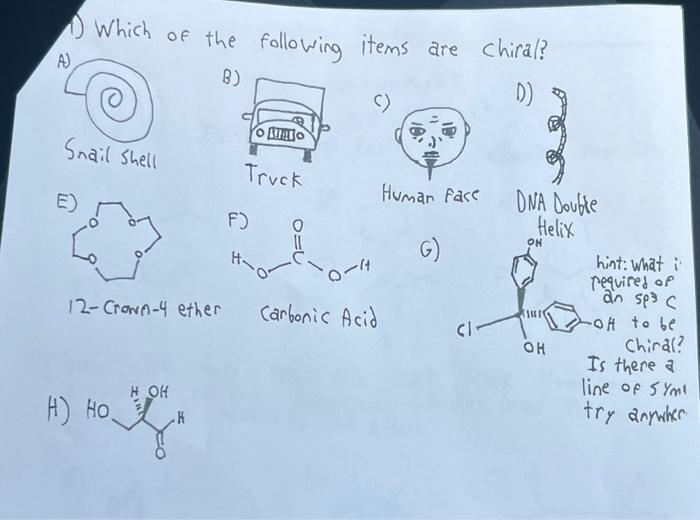 1) Which of the following items are chiral?
A)
B)
C)
D)
Snail Shell
Truck
Human Face
DNA Double
Helix
E)
F)
G)
O
O
O
O
O
H
O
C
O
H
12-Crown-4 ether
Carbonic Acid
OH
Cl
OH
OH
hint: What i
required of
an sp3 C
to be
Chiral?
Is there a
line of Sym
try anywher
H) HO
H OH
H
O